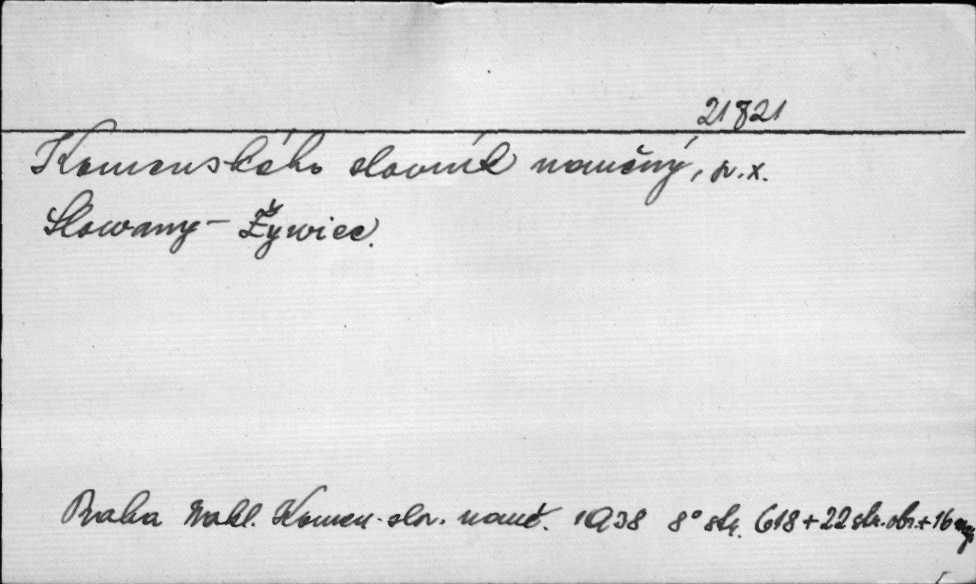 21821
Komenského slovník naučný, sv. X.
Slowany - Žywiec.
Praha Nakl. Komen. slov. nauč. 1938 8° str. 618 + 22 str. obr. + 16 map